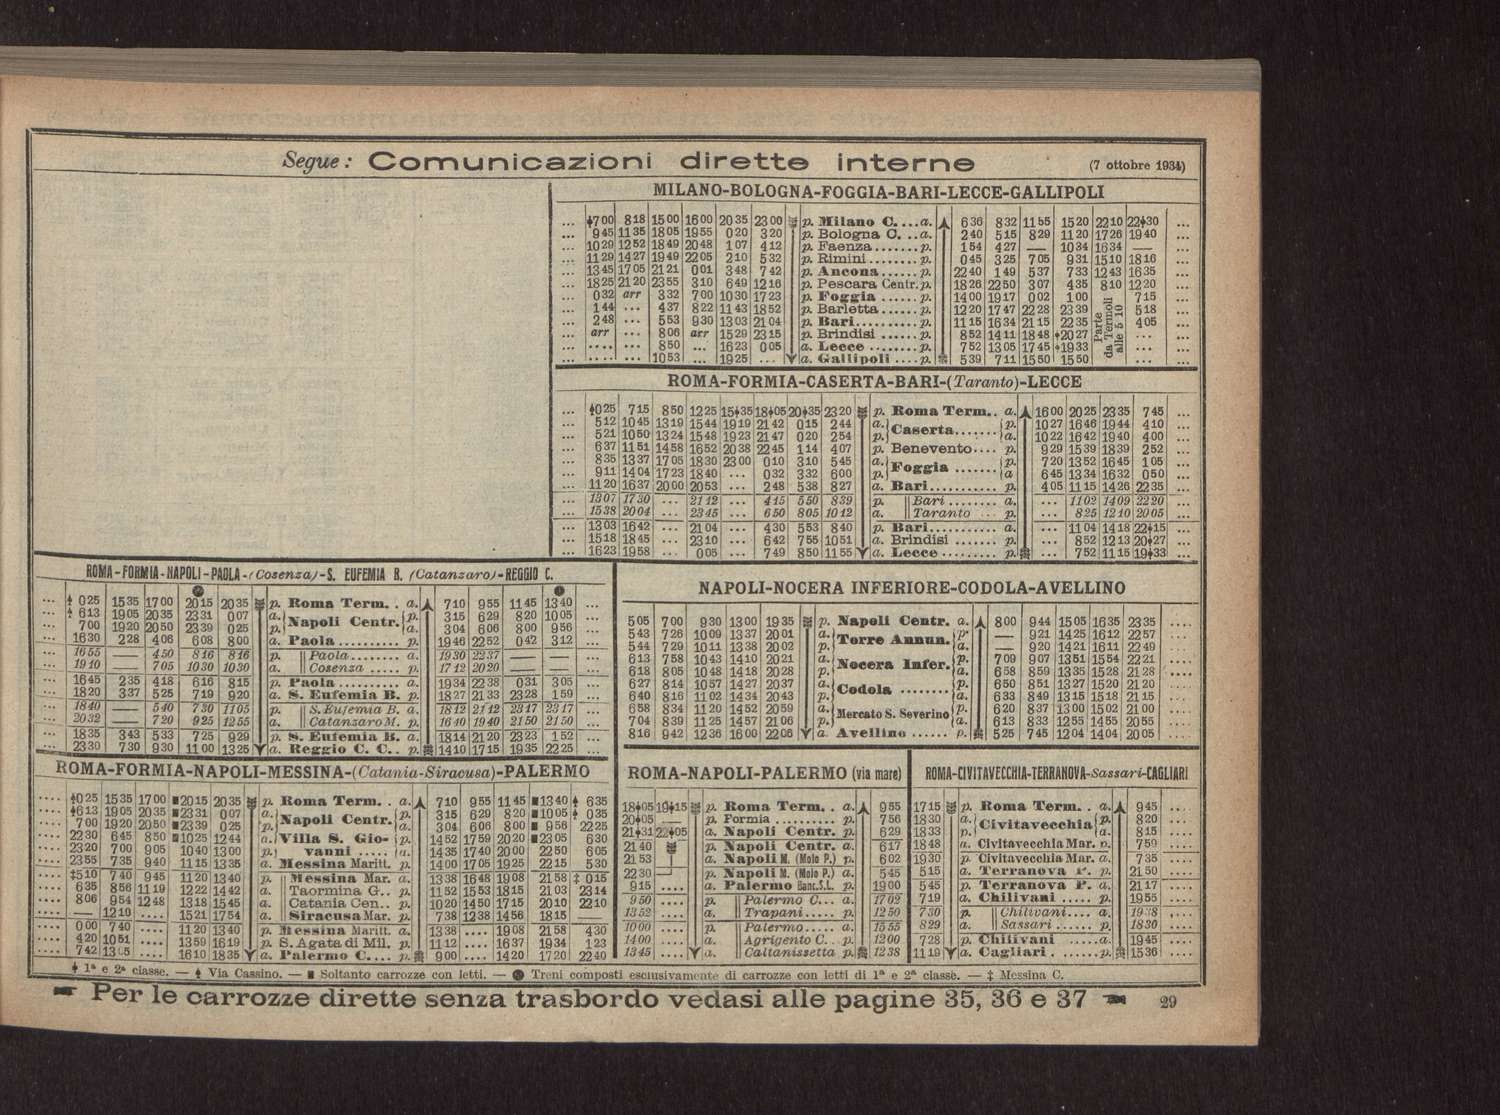 Segue: Comunicazioni dirette interne (7 ottobre 1934)
MILANO-BOLOGNA-FOGGIA-BARI-LECCE-GALLIPOLI
... 7 00 8 18 15 00 16 00 20 35 23 00 p. Milano C. ... a. 6 36 8 32 11 55 15 20 22 10 22 30 ...
... 9 45 11 35 18 05 19 55 0 20 3 20 p. Bologna C. .. a. 2 40 5 15 8 29 11 20 17 26 19 40 ...
... 10 29 12 52 18 49 20 48 1 07 4 12 p. Faenza ....... p. 1 54 4 27 — 10 34 16 34 — ...
... 11 29 14 27 19 49 22 05 2 10 5 32 p. Rimini ........ p. 0 45 3 25 7 05 9 31 15 10 18 16 ...
... 13 45 17 05 21 21 0 01 3 48 7 42 p. Ancona ...... p. 22 40 1 49 5 37 7 33 12 43 16 35 ...
... 18 25 21 20 23 55 3 10 6 49 12 16 p. Pescara Centr. p. 18 26 22 50 3 07 4 35 8 10 12 20 ...
... 0 32 arr 3 32 7 00 10 30 17 23 p. Foggia ...... p. 14 00 19 17 0 02 1 00 Parte da Termoli alle 5 10 7 15 ...
... 1 44 ... 4 37 8 22 11 43 18 52 p. Barletta ...... p. 12 20 17 47 22 28 23 39 5 18 ...
... 2 48 ... 5 53 9 30 13 03 21 04 p. Bari .......... p. 11 15 16 34 21 15 22 35 4 05 ...
... arr ... 8 06 arr 15 29 23 15 p. Brindisi ...... p. 8 52 14 11 18 48 20 27 ... ...
... .... ... 8 50 ... 16 23 0 05 a. Lecce ........ p. 7 52 13 05 17 45 19 33 ... ...
... .... ... 10 53 ... 19 25 ... a. Gallipoli .... p. 5 39 7 11 15 50 15 50 ... ...
ROMA-FORMIA-CASERTA-BARI-(Taranto)-LECCE
... 0 25 7 15 8 50 12 25 15 35 18 05 20 35 23 20 p. Roma Term. . a. 16 00 20 25 23 35 7 45 ...
... 5 12 10 45 13 19 15 44 19 19 21 42 0 15 2 44 a. Caserta ....... p. 10 27 16 46 19 44 4 10 ...
... 5 21 10 50 13 24 15 48 19 23 21 47 0 20 2 54 p. a. 10 22 16 42 19 40 4 00 ...
... 6 37 11 51 14 58 16 52 20 38 22 45 1 14 4 07 p. Benevento .... p. 9 29 15 39 18 39 2 52 ...
... 8 35 13 37 17 05 18 30 23 00 0 10 3 10 5 45 a. Foggia ....... p. 7 20 13 52 16 45 1 05 ...
... 9 11 14 04 17 23 18 40 ... 0 32 3 32 6 00 p. a. 6 45 13 34 16 32 0 50 ...
... 11 20 16 37 20 00 20 53 ... 2 48 5 38 8 27 a. Bari ........... p. 4 05 11 15 14 26 22 35 ...
... 13 07 17 30 ... 21 12 ... 4 15 5 50 8 39 p. Bari .......... a. ... 11 02 14 09 22 20 ...
... 15 38 20 04 ... 23 45 ... 6 50 8 05 10 12 a. Taranto ... p. ... 8 25 12 10 20 05 ...
... 13 03 16 42 ... 21 04 ... 4 30 5 53 8 40 p. Bari ........... a. ... 11 04 14 18 22 15 ...
... 15 18 18 45 ... 23 10 ... 6 42 7 55 10 51 a. Brindisi ...... p. ... 8 52 12 13 20 27 ...
... 16 23 19 58 ... 0 05 ... 7 49 8 50 11 55 a. Lecce ......... p. ... 7 52 11 15 19 33 ...
ROMA-FORMIA-NAPOLI-PAOLA-(Cosenza)-S. EUFEMIA B. (Catanzaro)-REGGIO C.
... 0 25 15 35 17 00 20 15 20 35 p. Roma Term. . a. 7 10 9 55 11 45 13 40 ...
... 6 13 19 05 20 35 23 31 0 07 a. Napoli Centr. p. 3 15 6 29 8 20 10 05 ...
... 7 00 19 20 20 50 23 39 0 25 p. a. 3 04 6 06 8 00 9 56 ...
... 16 30 2 28 4 06 6 08 8 00 a. Paola .......... p. 19 46 22 52 0 42 3 12 ...
... 16 55 — 4 50 8 16 8 16 p. Paola ........ a. 19 30 22 37 — — ...
... 19 10 — 7 05 10 30 10 30 a. Cosenza ..... p. 17 12 20 20 — — ...
... 16 45 2 35 4 18 6 16 8 15 p. Paola .......... a. 19 34 22 38 0 31 3 05 ...
... 18 20 3 37 5 25 7 19 9 20 a. S. Eufemia B. p. 18 27 21 33 23 28 1 59 ...
... 18 40 — 5 40 7 30 11 05 p. S. Eufemia B. a. 18 12 21 12 23 17 23 17 ...
... 20 32 — 7 20 9 25 12 55 a. Catanzaro M. p. 16 10 19 40 21 50 21 50 ...
... 18 35 3 43 5 33 7 25 9 29 p. S. Eufemia B. a. 18 14 21 20 23 23 1 52 ...
... 23 30 7 30 9 30 11 00 13 25 a. Reggio C. C. . p. 14 10 17 15 19 35 22 25 ...
NAPOLI-NOCERA INFERIORE-CODOLA-AVELLINO
5 05 7 00 9 30 13 00 19 35 p. Napoli Centr. a. 8 00 9 44 15 05 16 35 23 35 ....
5 43 7 26 10 09 13 37 20 01 a. Torre Annun. p. — 9 21 14 25 16 12 22 57
5 44 7 29 10 11 13 38 20 02 p. a. — 9 20 14 21 16 11 22 49
6 13 7 58 10 43 14 10 20 21 a. Nocera Infer. p. 7 09 9 07 13 51 15 54 22 21 ....
6 18 8 05 10 48 14 18 20 28 p. a. 6 58 8 59 13 35 15 28 21 28 ....
6 27 8 14 10 57 14 27 20 37 a. Codola ........ p. 6 50 8 51 13 27 15 20 21 20 ....
6 40 8 16 11 02 14 34 20 43 p. a. 6 33 8 49 13 15 15 18 21 15 ....
6 58 8 34 11 20 14 52 20 59 a. Mercato S. Severino p. 6 20 8 37 13 00 15 02 21 00 ....
7 04 8 39 11 25 14 57 21 06 p. a. 6 13 8 33 12 55 14 55 20 55 ....
8 16 9 42 12 36 16 00 22 06 a. Avellino ...... p. 5 25 7 45 12 04 14 04 20 05 ....
ROMA-FORMIA-NAPOLI-MESSINA-(Catania-Siracusa)-PALERMO
.... 0 25 15 35 17 00 20 15 20 35 p. Roma Term. . a. 7 10 9 55 11 45 13 40 6 35
.... 6 13 19 05 20 35 23 31 0 07 a. Napoli Centr. p. 3 15 6 29 8 20 10 05 0 35
.... 7 00 19 20 20 50 23 39 0 25 p. a. 3 04 6 06 8 00 9 56 22 25
.... 22 30 6 45 8 50 10 25 12 44 a. Villa S. Gio- p. 14 52 17 59 20 20 23 05 6 30
.... 23 20 7 00 9 05 10 40 13 00 p. vanni ..... a. 14 35 17 40 20 00 22 50 6 05
.... 23 55 7 35 9 40 11 15 13 35 a. Messina Maritt. p. 14 00 17 05 19 25 22 15 5 30
.... ‡5 10 7 40 9 45 11 20 13 40 p. Messina Mar. a. 13 38 16 48 19 08 21 58 ‡ 0 15
.... 6 35 8 56 11 19 12 22 14 42 a. Taormina G.. p. 11 52 15 53 18 15 21 03 23 14
.... 8 06 9 54 12 48 13 18 15 45 a. Catania Cen.. p. 10 20 14 50 17 15 20 10 22 10
.... — 12 10 .... 15 21 17 54 a. Siracusa Mar. p. 7 38 12 38 14 56 18 15 —
.... 0 00 7 40 .... 11 20 13 40 p. Messina Maritt. a. 13 38 .... 19 08 21 58 4 30
.... 4 20 10 51 .... 13 59 16 19 p. S. Agata di Mil. p. 11 12 .... 16 37 19 34 1 23
.... 7 42 13 05 .... 16 10 18 35 a. Palermo C. ... p. 9 00 .... 14 20 17 20 22 40
ROMA-NAPOLI-PALERMO (via mare)
18 05 19 15 p. Roma Term. . a. 9 55
20 05 — p. Formia ......... p. 7 56
21 31 22 05 a. Napoli Centr. p. 6 29
21 40 p. Napoli Centr. a. 6 17
21 53 a. Napoli M. (Molo P.) p. 6 02
22 30 p. Napoli M. (Molo P.) a. 5 45
9 15 .... a. Palermo Banc. S.L. p. 19 00
9 50 .... p. Palermo C... a. 17 02
13 52 .... a. Trapani ..... p. 12 50
10 00 .... p. Palermo ..... a. 15 55
14 00 .... a. Agrigento C. . p. 12 00
13 45 .... a. Caltanissetta p. 12 38
ROMA-CIVITAVECCHIA-TERRANOVA-Sassari-CAGLIARI
17 15 p. Roma Term. . a. 9 45 ....
18 30 a. Civitavecchia p. 8 20 ....
18 33 p. a. 8 15 ....
18 48 a. Civitavecchia Mar. p. 7 59 ....
19 30 p. Civitavecchia Mar. a. 7 35 ....
5 15 a. Terranova P. p. 21 50 ....
5 45 p. Terranova P. a. 21 17 ....
7 19 a. Chilivani ..... p. 19 55 ....
7 30 p. Chilivani .... a. 19 38 ....
8 29 a. Sassari ...... p. 18 30 ....
7 28 p. Chilivani ..... a. 19 45 ....
11 19 a. Cagliari ....... p. 15 36 ....
1ª e 2ª classe. — Via Cassino. — ■ Soltanto carrozze con letti. — Treni composti esclusivamente di carrozze con letti di 1ª e 2ª classe. — ‡ Messina C.
☛ Per le carrozze dirette senza trasbordo vedasi alle pagine 35, 36 e 37 ☚ 29